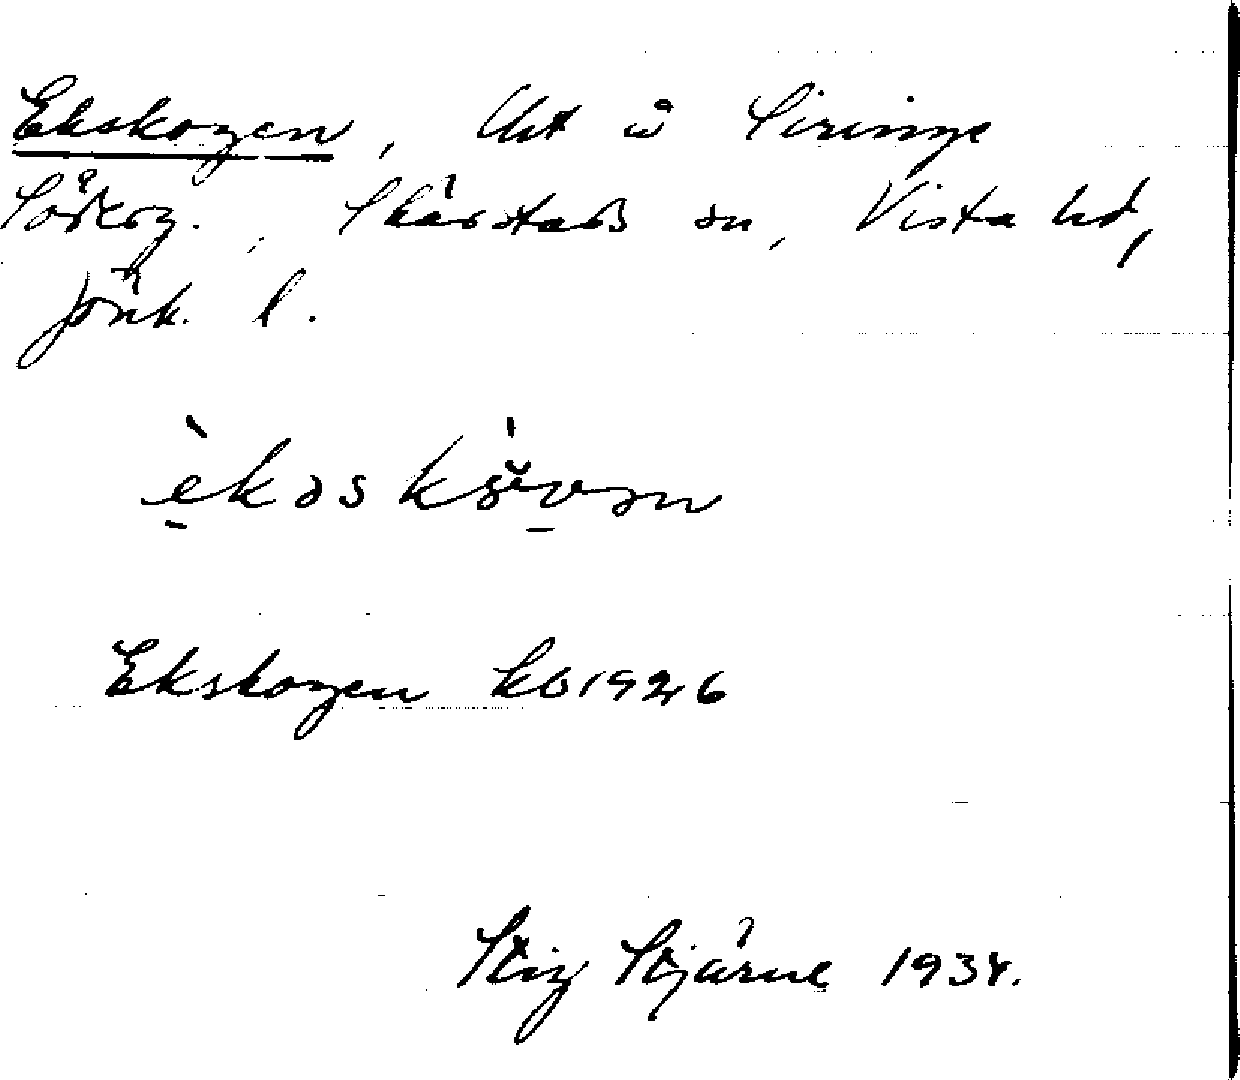 Ekskogen, Utt å Siringe
Söderg., Skärstads sn, Vista hd,
Jönk. l.
Ekskogen kb 1926
Stig Stjärne 1934.